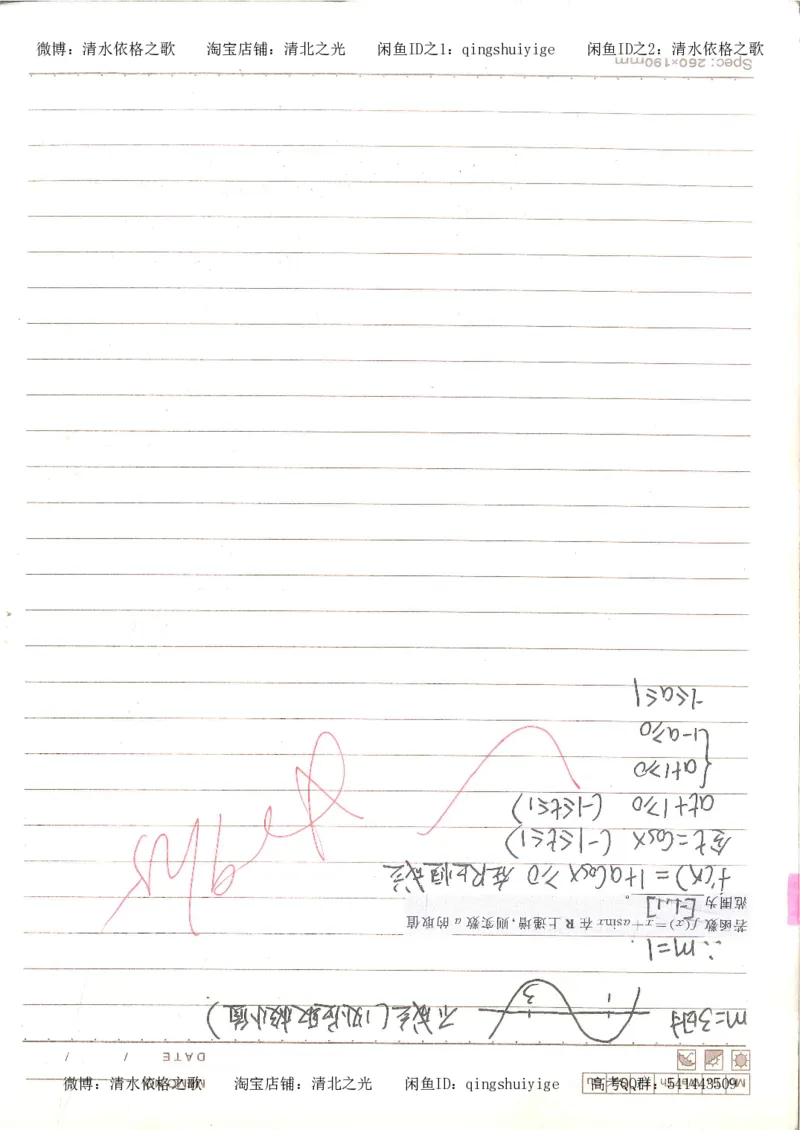 微博：清水依格之歌 淘宝店铺：清北之光 闲鱼ID之1：qingshuiyige 闲鱼ID之2：清水依格之歌
m=3时 不成立(1处应取极小值)
1 3
∴m=1.
若函数 f(x)=x+asinx 在 R 上递增,则实数 a 的取值
范围为 [-1,1] 。
f'(x)=1+acosx≥0 在R上恒成立
令t=cosx (-1≤t≤1)
at+1≥0 (-1≤t≤1)
{a+1≥0
1-a≥0
-1≤a≤1
9/45
Spec: 260×190mm
DATE / /
微博：清水依格之歌 淘宝店铺：清北之光 闲鱼ID：qingshuiyige 高考QQ群：541443509